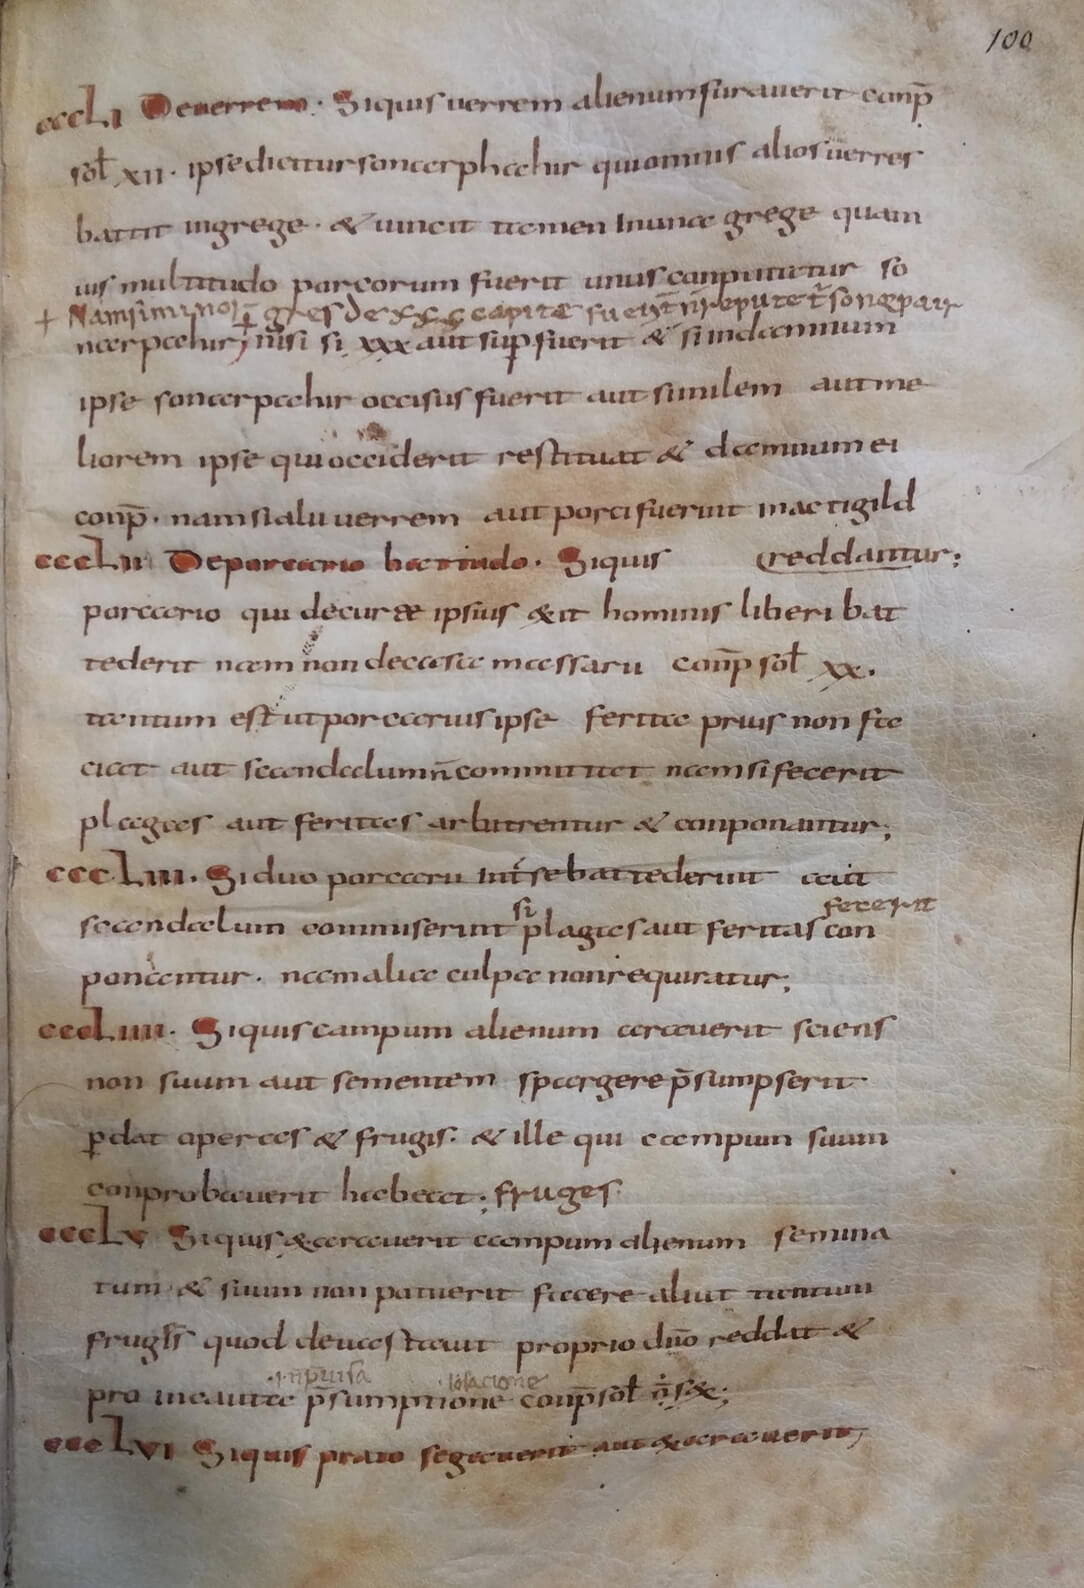 100
cccLI De uerrem. Siquis uerrem alienum furauerit conp̄
sol̄ xii. ipse dicitur sonarphahir qui omnis alios uerres
battit ingrege. & uincit tamen In una grege quam
uis multitudo porcorum fuerit unus conputetur so
narpahir; nisi si xxx aut suꝑ fuerit & si indamnum
ipse sonarpahir occisus fuerit aut similem aut me
liorem ipse qui occiderit restituat & damnum ei
conp̄. nam si alii uerrem aut porci fuerint in actigild
reddantur;
cccLII De porcario battudo. Siquis
porcario qui de curae ipsius exit hominis liberi bat
tederit nam non de casa massarii conp̄ sol̄ xx.
tantum est ut porcarius ipse ferita prius non fa
ciat aut scandalum n̄ committat nam si fecerit
plagas aut feritas arbitrentur & conponantur;
cccLIII. Si duo porcarii Int̄ se battederint aut
fecerit
si
scandalum commiserint plagas aut feritas con
ponantur. nam alia culpa non requiratur;
cccLIIII. Siquis campum alienum araauerit sciens
non suum aut sementem spargere p̄sumpserit
ꝑdat operas & frugis. & ille qui campum suum
conprobauerit habeat; fruges
cccLV Siquis exaraauerit campum alienum semina
tum & suum non potuerit facere aliut tantum
frugis quod deuastauit proprio dn̄o reddat &
pro incauta p̄sumptione conp̄ sol̄
cccLVI Siquis prato segauerit aut exaraauerit,